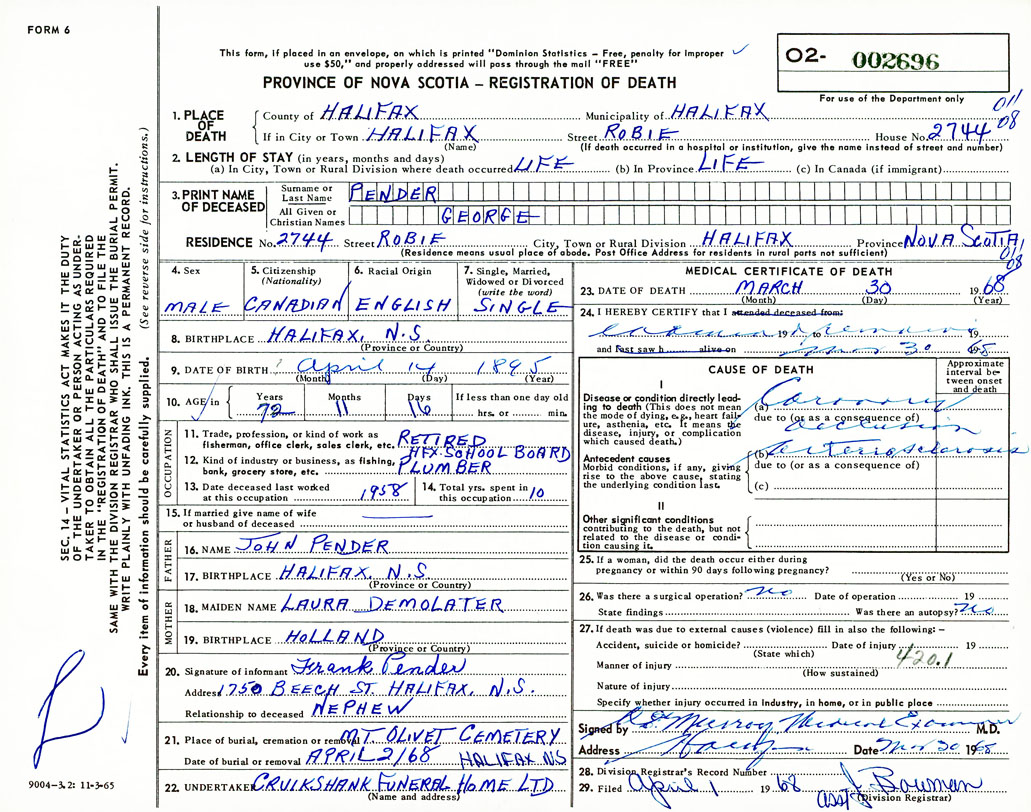 FORM 6
This form, if placed in an envelope, on which is printed "Dominion Statistics – Free, penalty for improper
use $50," and properly addressed will pass through the mail "FREE"
PROVINCE OF NOVA SCOTIA – REGISTRATION OF DEATH
O2- 002696
For use of the Department only
011
08
1. PLACE OF DEATH
County of HALIFAX Municipality of HALIFAX
If in City or Town HALIFAX Street ROBIE House No. 2744
(Name) (If death occurred in a hospital or institution, give the name instead of street and number)
2. LENGTH OF STAY (in years, months and days)
(a) In City, Town or Rural Division where death occurred LIFE (b) In Province LIFE (c) In Canada (if immigrant)
3. PRINT NAME OF DECEASED
Surname or Last Name PENDER
All Given or Christian Names GEORGE
RESIDENCE No. 2744 Street ROBIE City, Town or Rural Division HALIFAX Province NOVA SCOTIA
(Residence means usual place of abode. Post Office Address for residents in rural parts not sufficient)
011
08
4. Sex MALE
5. Citizenship (Nationality) CANADIAN
6. Racial Origin ENGLISH
7. Single, Married, Widowed or Divorced (write the word) SINGLE
8. BIRTHPLACE HALIFAX, N.S.
(Province or Country)
9. DATE OF BIRTH April 14 1895
(Month) (Day) (Year)
10. AGE in Years 72 Months 11 Days 16 If less than one day old hrs. or min.
OCCUPATION
11. Trade, profession, or kind of work as fisherman, office clerk, sales clerk, etc. RETIRED
12. Kind of industry or business, as fishing, bank, grocery store, etc. HFX SCHOOL BOARD PLUMBER
13. Date deceased last worked at this occupation 1958
14. Total yrs. spent in this occupation 10
15. If married give name of wife or husband of deceased
FATHER
16. NAME JOHN PENDER
17. BIRTHPLACE HALIFAX, N.S
(Province or Country)
MOTHER
18. MAIDEN NAME LAURA DEMOLATER
19. BIRTHPLACE HOLLAND
(Province or Country)
20. Signature of informant Frank Pender
Address 1750 BEECH ST. HALIFAX, N.S.
Relationship to deceased NEPHEW
21. Place of burial, cremation or removal MT OLIVET CEMETERY
Date of burial or removal APRIL 2/68 HALIFAX NS
22. UNDERTAKER CRUIKSHANK FUNERAL HOME LTD
(Name and address)
MEDICAL CERTIFICATE OF DEATH
23. DATE OF DEATH MARCH 30 1968
(Month) (Day) (Year)
24. I HEREBY CERTIFY that I attended deceased from:
19 to remains 19
and last saw h alive on Mar 30 1968
CAUSE OF DEATH
Approximate interval between onset and death
I
Disease or condition directly leading to death (This does not mean the mode of dying, e.g., heart failure, asthenia, etc. It means the disease, injury, or complication which caused death.)
(a) Coronary
due to (or as a consequence of)
occlusion
Antecedent causes
Morbid conditions, if any, giving rise to the above cause, stating the underlying condition last.
(b) arteriosclerosis
due to (or as a consequence of)
(c)
II
Other significant conditions
contributing to the death, but not related to the disease or condition causing it.
25. If a woman, did the death occur either during
pregnancy or within 90 days following pregnancy?
(Yes or No)
26. Was there a surgical operation? no Date of operation 19
State findings Was there an autopsy? no
27. If death was due to external causes (violence) fill in also the following: –
Accident, suicide or homicide? Date of injury 19
(State which) 420.1
Manner of injury
(How sustained)
Nature of injury
Specify whether injury occurred in Industry, in home, or in public place
Signed by Murray Medical Examiner M.D.
Address Date Mar 30 1968
28. Division Registrar's Record Number
29. Filed April 1 1968 J. Bowman
asst (Division Registrar)
SEC. 14 – VITAL STATISTICS ACT MAKES IT THE DUTY
OF THE UNDERTAKER OR PERSON ACTING AS UNDER-
TAKER TO OBTAIN ALL THE PARTICULARS REQUIRED
IN THE "REGISTRATION OF DEATH" AND TO FILE THE
SAME WITH THE DIVISION REGISTRAR WHO SHALL ISSUE THE BURIAL PERMIT.
WRITE PLAINLY WITH UNFADING INK. THIS IS A PERMANENT RECORD.
Every item of information should be carefully supplied. (See reverse side for instructions.)
9004-3.2: 11-3-65